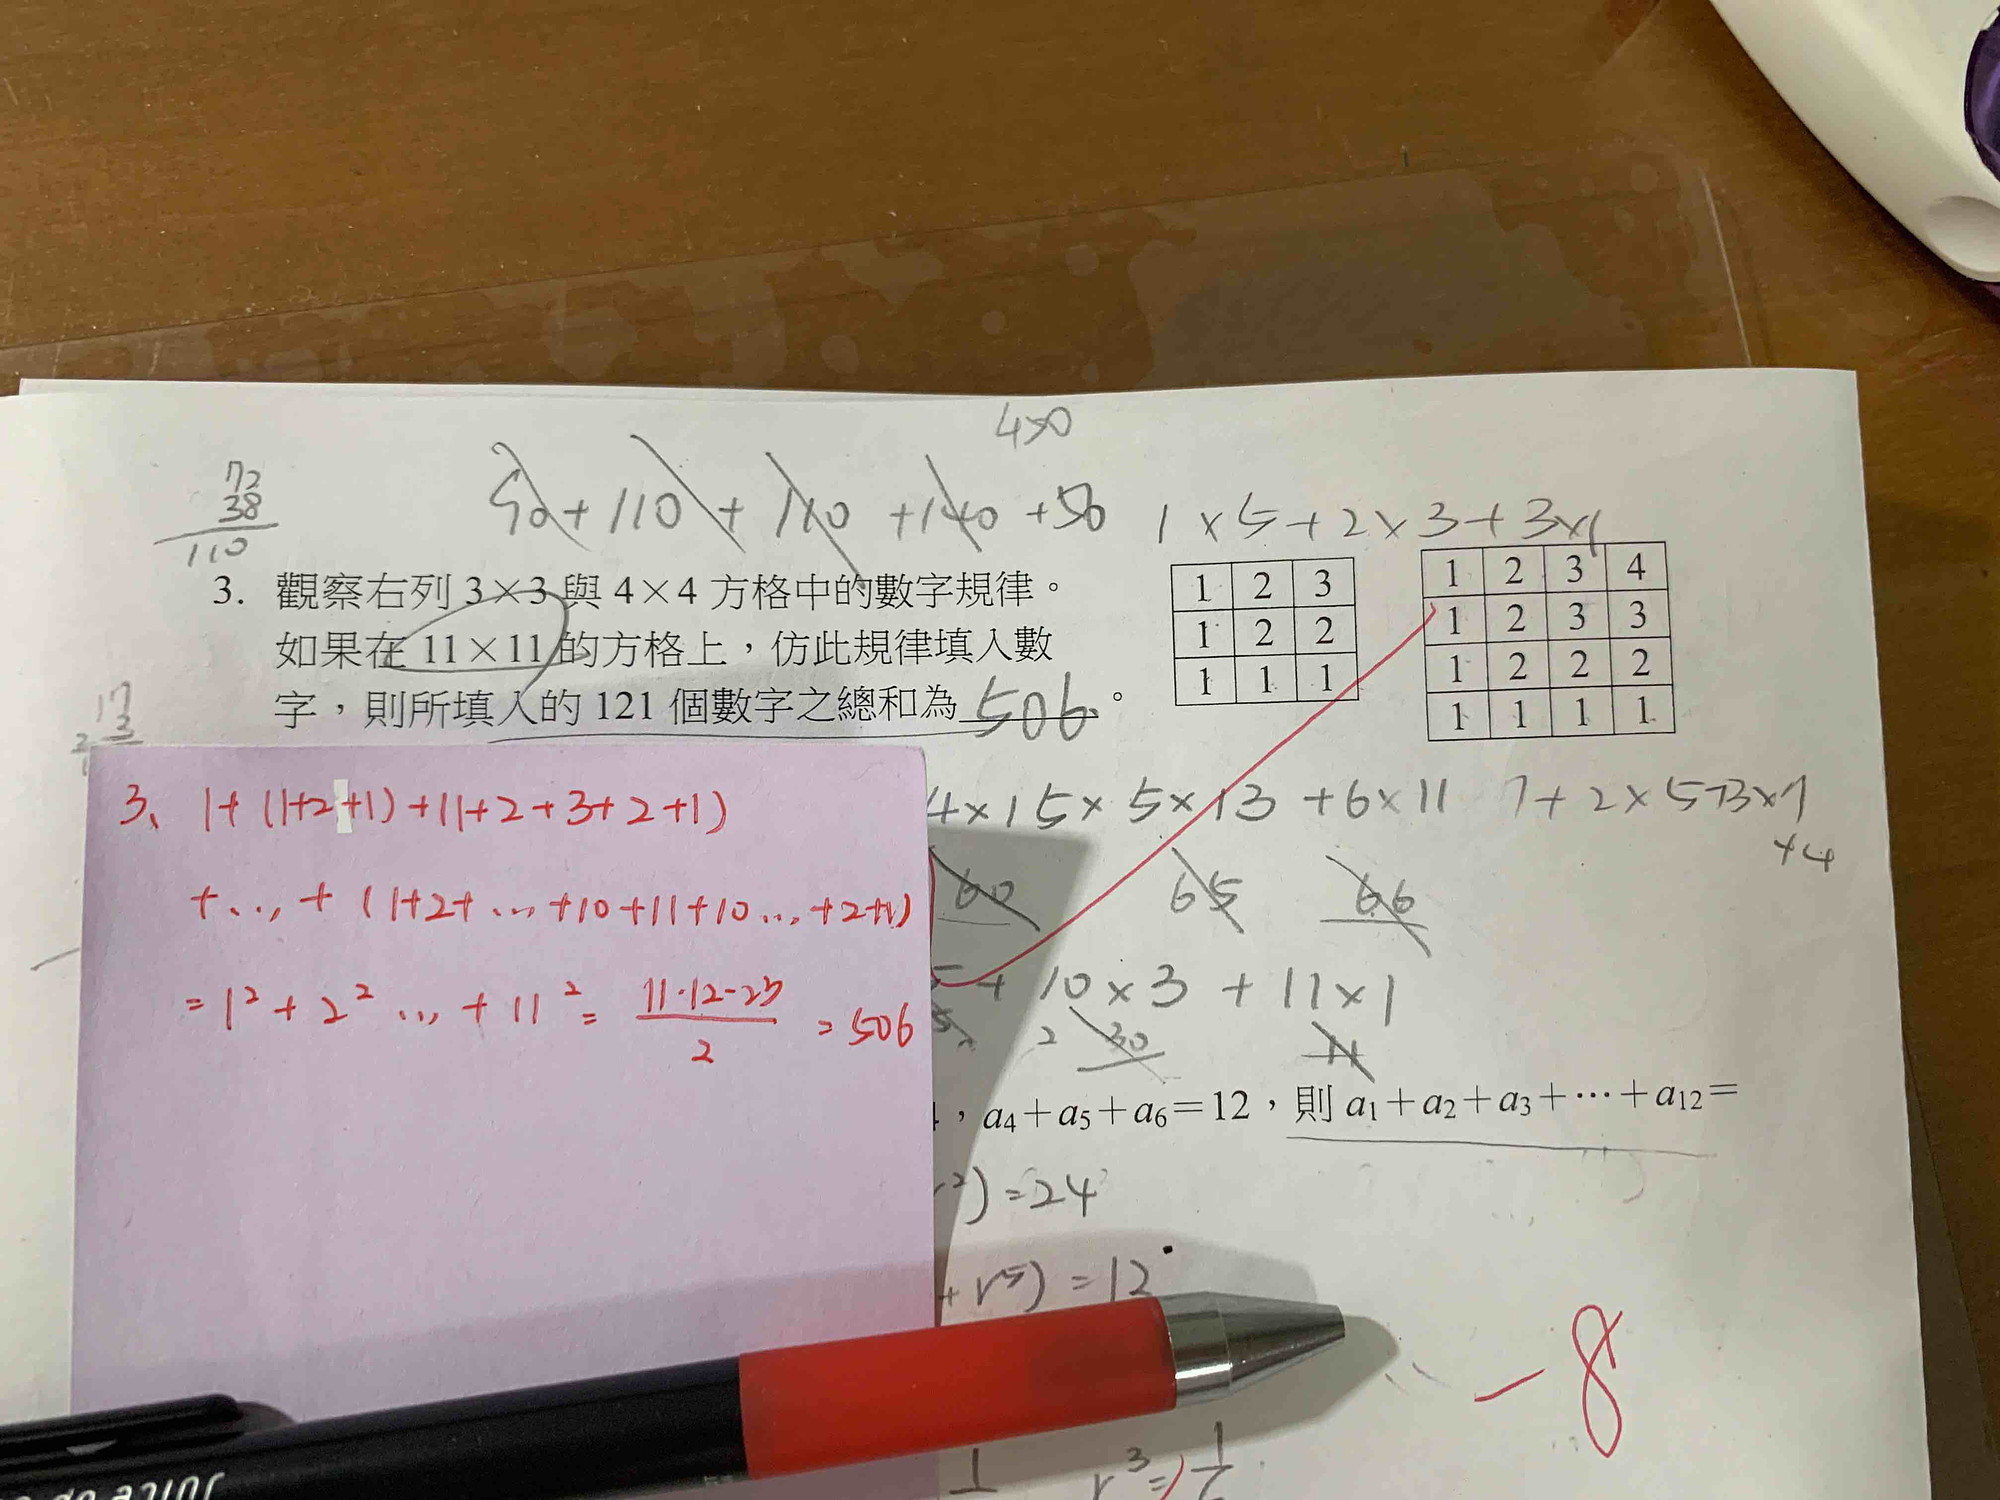 4×0
72
38
110
50+110+140+140+50
1×5+2×3+3×1
3. 觀察右列 3×3 與 4×4 方格中的數字規律。
如果在 11×11 的方格上，仿此規律填入數
字，則所填入的 121 個數字之總和為 506 。
1 2 3
1 2 2
1 1 1
1 2 3 4
1 2 3 3
1 2 2 2
1 1 1 1
17
3
3、 1+(1+2+1)+(1+2+3+2+1)
+…+(1+2+…+10+11+10…+2+1)
=1²+2²…+11²= 11·12·23 / 2 =506
4×15×5×13+6×11
7+2×5+3×1
+4
60 65 66
+10×3+11×1
2 30 11
，a₄+a₅+a₆=12，則 a₁+a₂+a₃+⋯+a₁₂=
r²)=24
+r⁵)=12
-8
1 r³=
JUICE UP